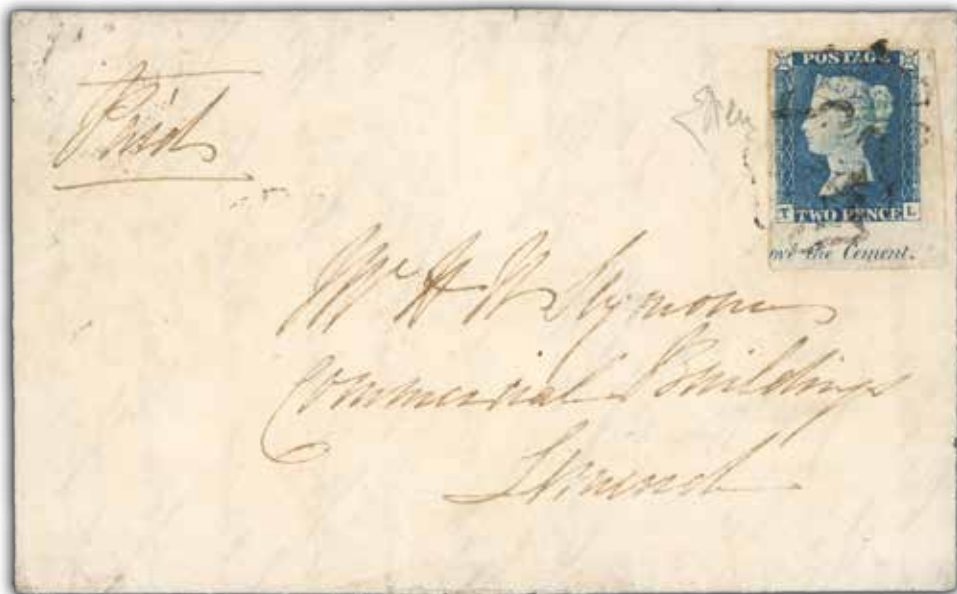 Paid
POSTAGE
T TWO PENCE L
ove the Cement.
Mr H W Symons
Commercial Buildings
Limerick